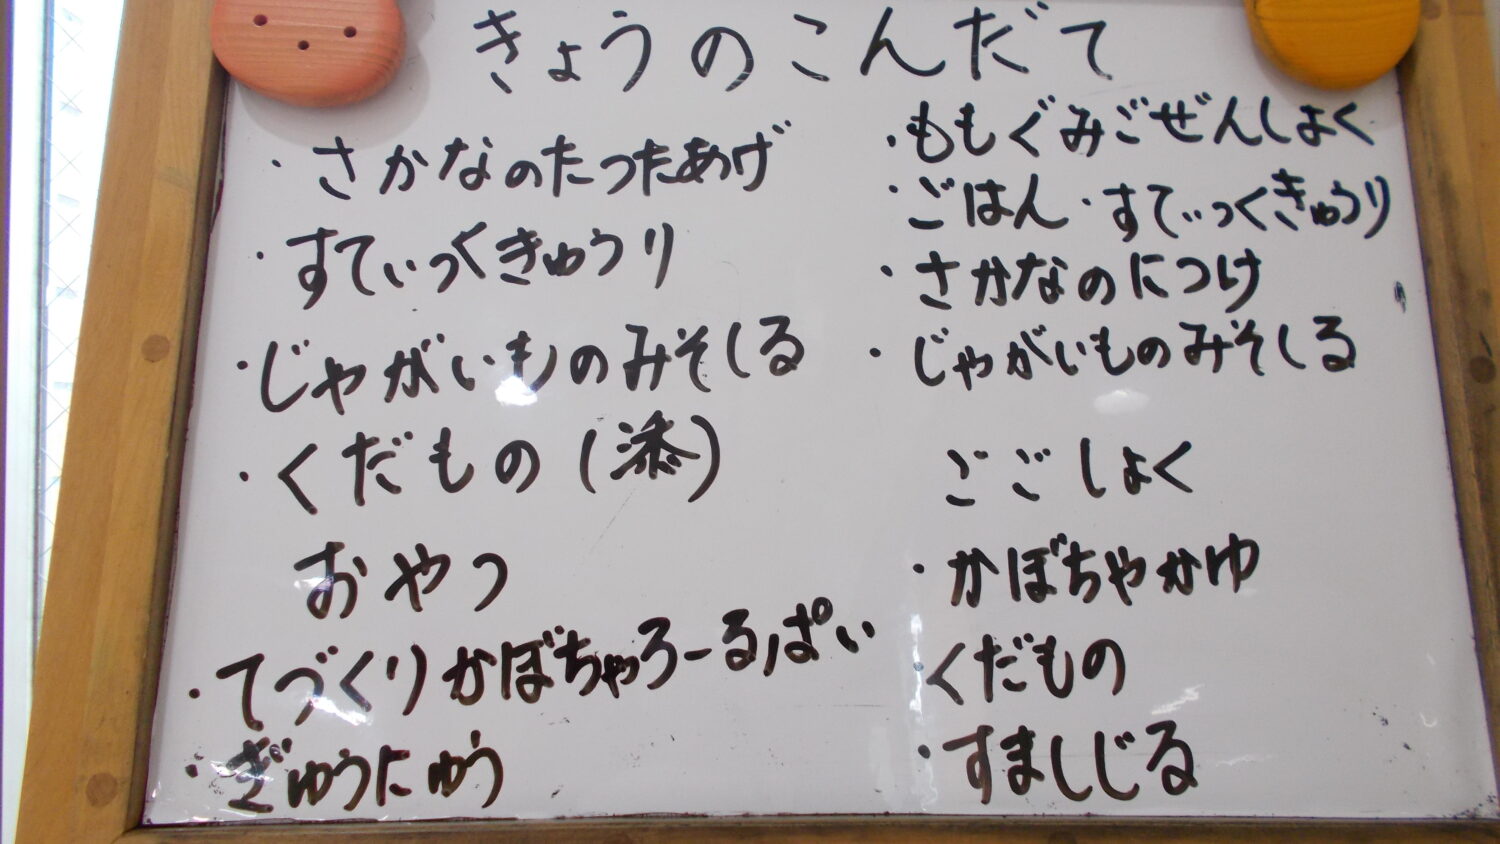 きょうのこんだて
・さかなのたつたあげ
・すてぃっくきゅうり
・じゃがいものみそしる
・くだもの(添)
おやつ
・てづくりかぼちゃろーるぱい
・ぎゅうにゅう
・ももぐみごぜんしょく
・ごはん・すてぃっくきゅうり
・さかなのにつけ
・じゃがいものみそしる
ごごしょく
・かぼちゃかゆ
・くだもの
・すましじる